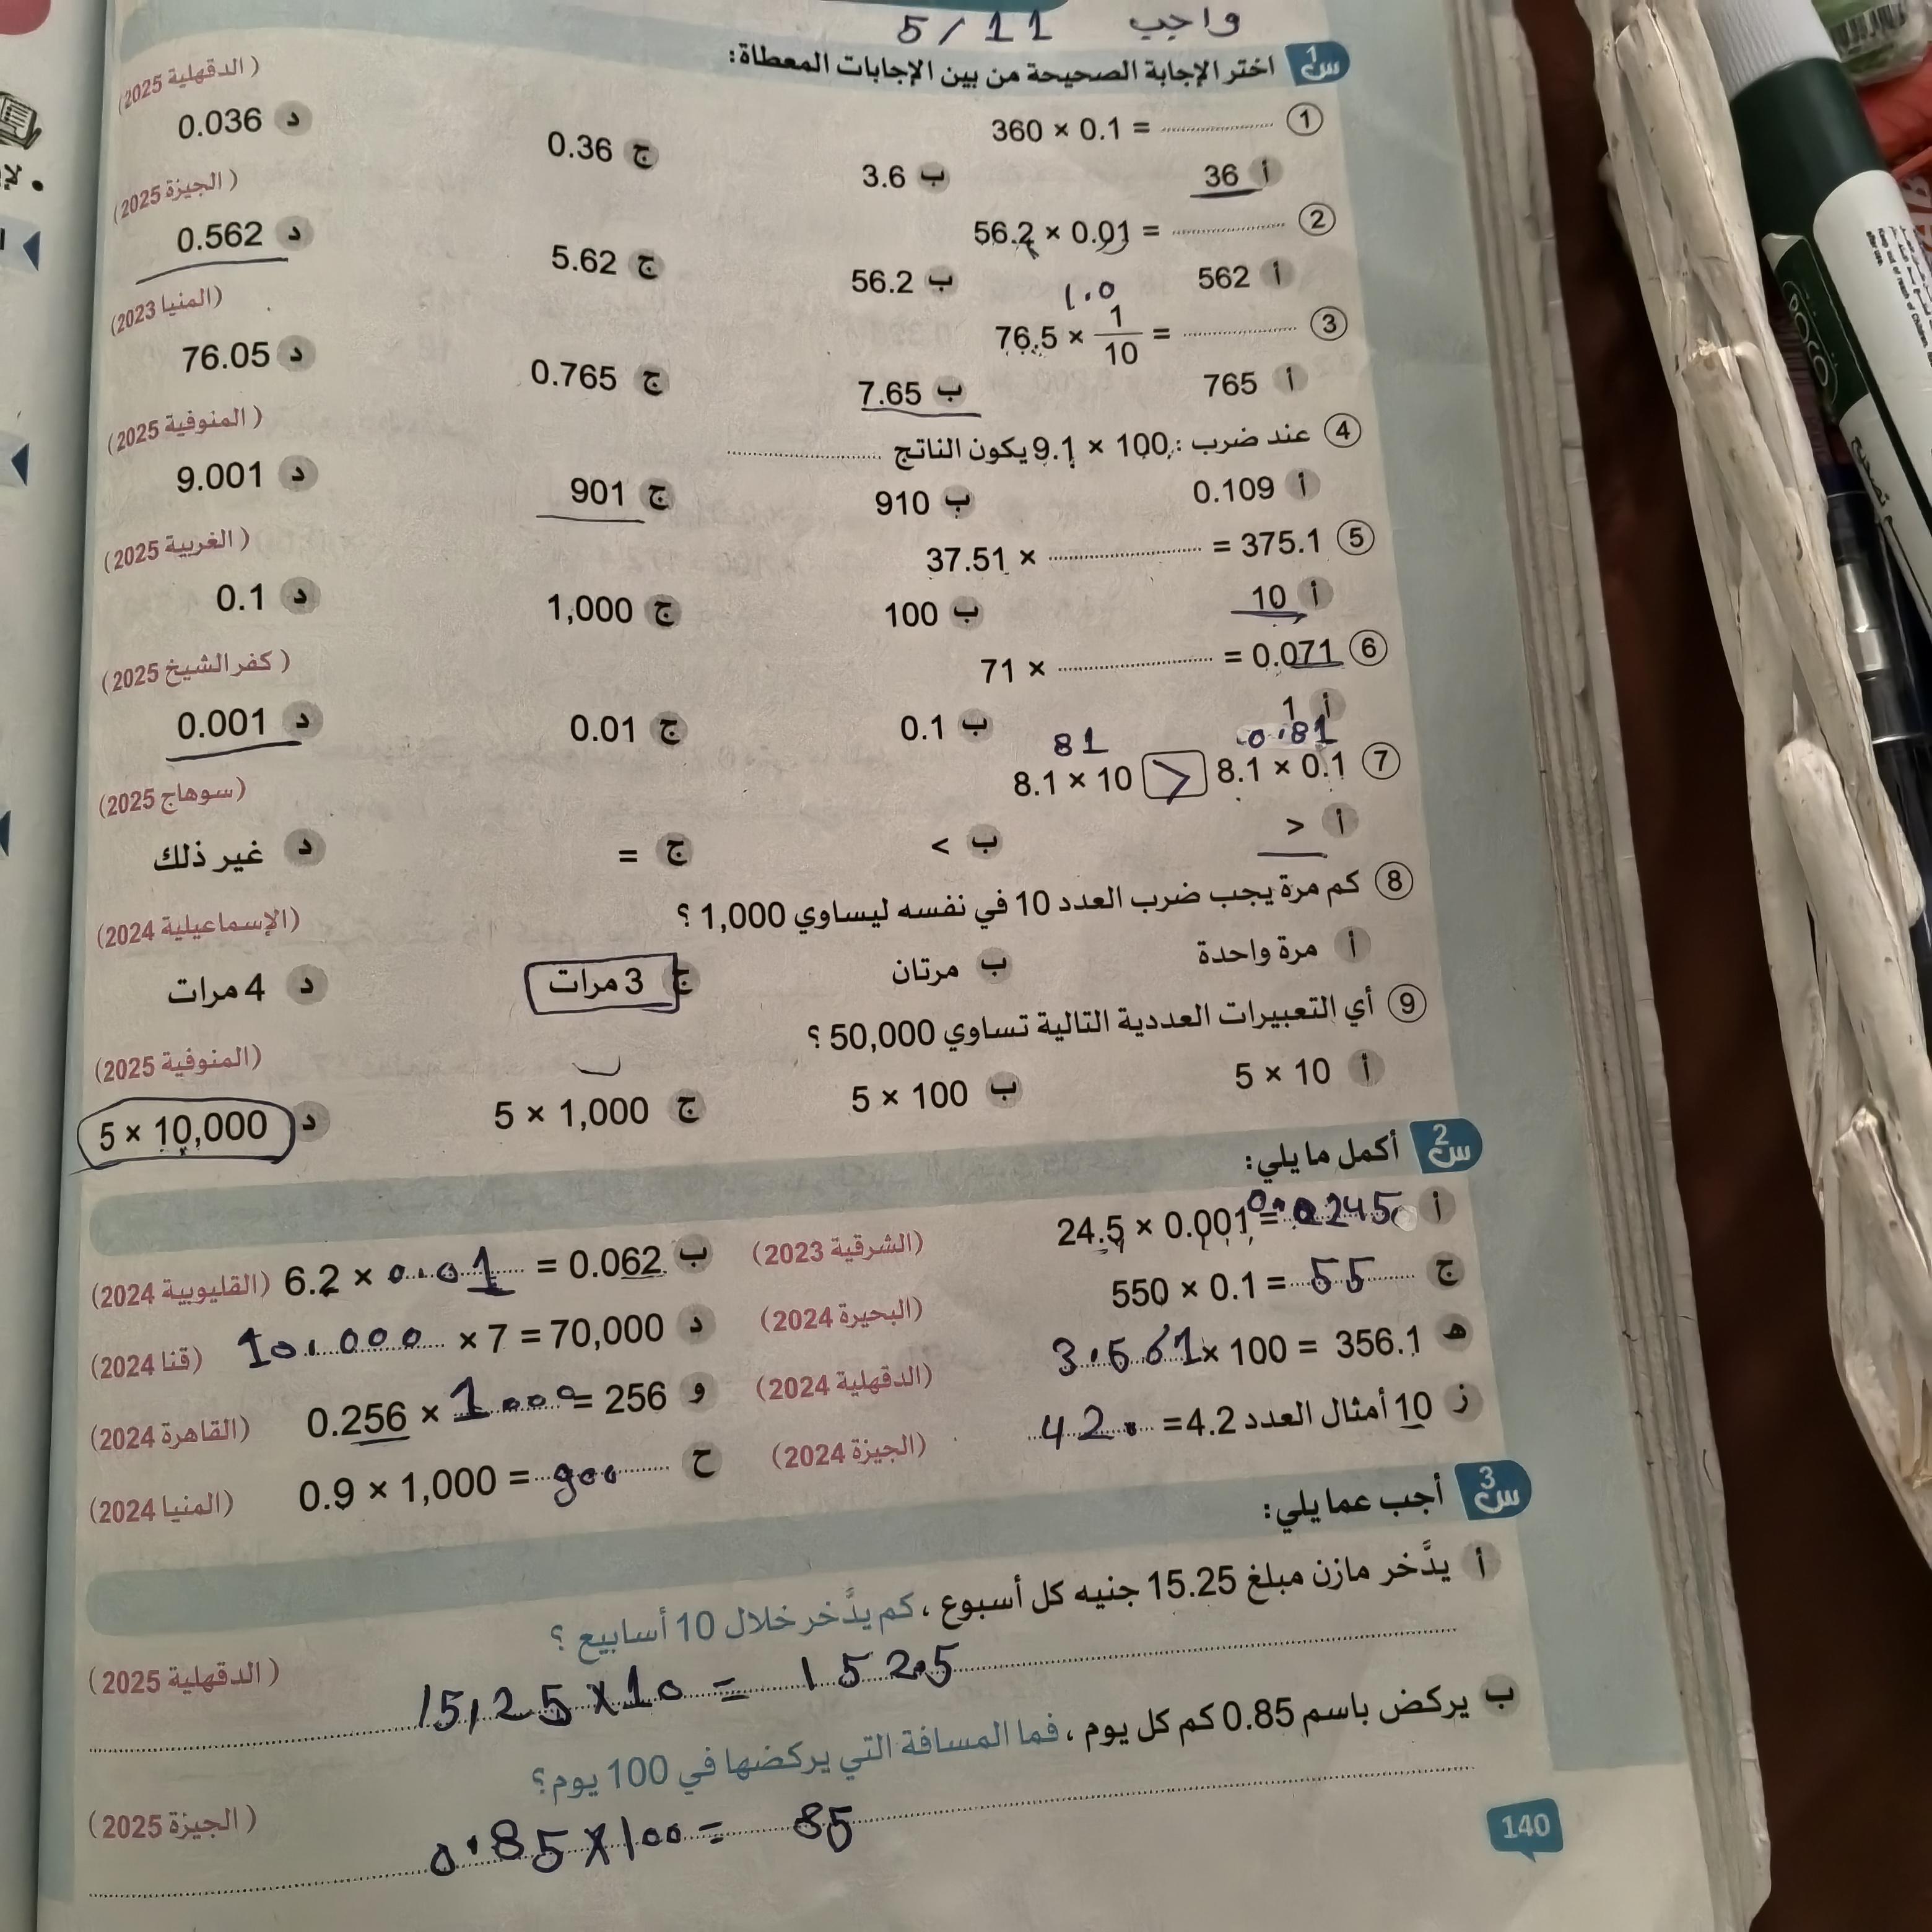 واجب 5/11
س1 اختر الإجابة الصحيحة من بين الإجابات المعطاة:
1 360 × 0.1 = ............ (الدقهلية 2025)
أ 36 ب 3.6 ج 0.36 د 0.036
2 56.2 × 0.01 = ............ (الجيزة 2025)
أ 562 ب 56.2 ج 5.62 د 0.562
1.0
3 76.5 × 1/10 = ............ (المنيا 2023)
أ 765 ب 7.65 ج 0.765 د 76.05
4 عند ضرب : 9.1 × 100 يكون الناتج ............ (المنوفية 2025)
أ 0.109 ب 910 ج 901 د 9.001
5 37.51 × ............ = 375.1 (الغربية 2025)
أ 10 ب 100 ج 1,000 د 0.1
6 71 × ............ = 0.071 (كفر الشيخ 2025)
أ 1 ب 0.1 ج 0.01 د 0.001
81 0.81
7 8.1 × 10 > 8.1 × 0.1 (سوهاج 2025)
أ > ب < ج = د غير ذلك
8 كم مرة يجب ضرب العدد 10 في نفسه ليساوي 1,000 ؟ (الإسماعيلية 2024)
أ مرة واحدة ب مرتان ج 3 مرات د 4 مرات
9 أي التعبيرات العددية التالية تساوي 50,000 ؟ (المنوفية 2025)
أ 5 × 10 ب 5 × 100 ج 5 × 1,000 د 5 × 10,000
س2 أكمل ما يلي:
أ 24.5 × 0.001 = 0.0245 (الشرقية 2023)
ب 6.2 × 0.01 = 0.062 (القليوبية 2024)
ج 550 × 0.1 = 55 (البحيرة 2024)
د 10.000 × 7 = 70,000 (قنا 2024)
هـ 3.561 × 100 = 356.1 (الدقهلية 2024)
و 0.256 × 1000 = 256 (القاهرة 2024)
ز 10 أمثال العدد 4.2 = 42. (الجيزة 2024)
ح 0.9 × 1,000 = 900 (المنيا 2024)
س3 أجب عما يلي:
أ يدَّخر مازن مبلغ 15.25 جنيه كل أسبوع ، كم يدَّخر خلال 10 أسابيع ؟ (الدقهلية 2025)
15,25 × 10 = 152.5
ب يركض باسم 0.85 كم كل يوم ، فما المسافة التي يركضها في 100 يوم؟ (الجيزة 2025)
0.85 × 100 = 85
140